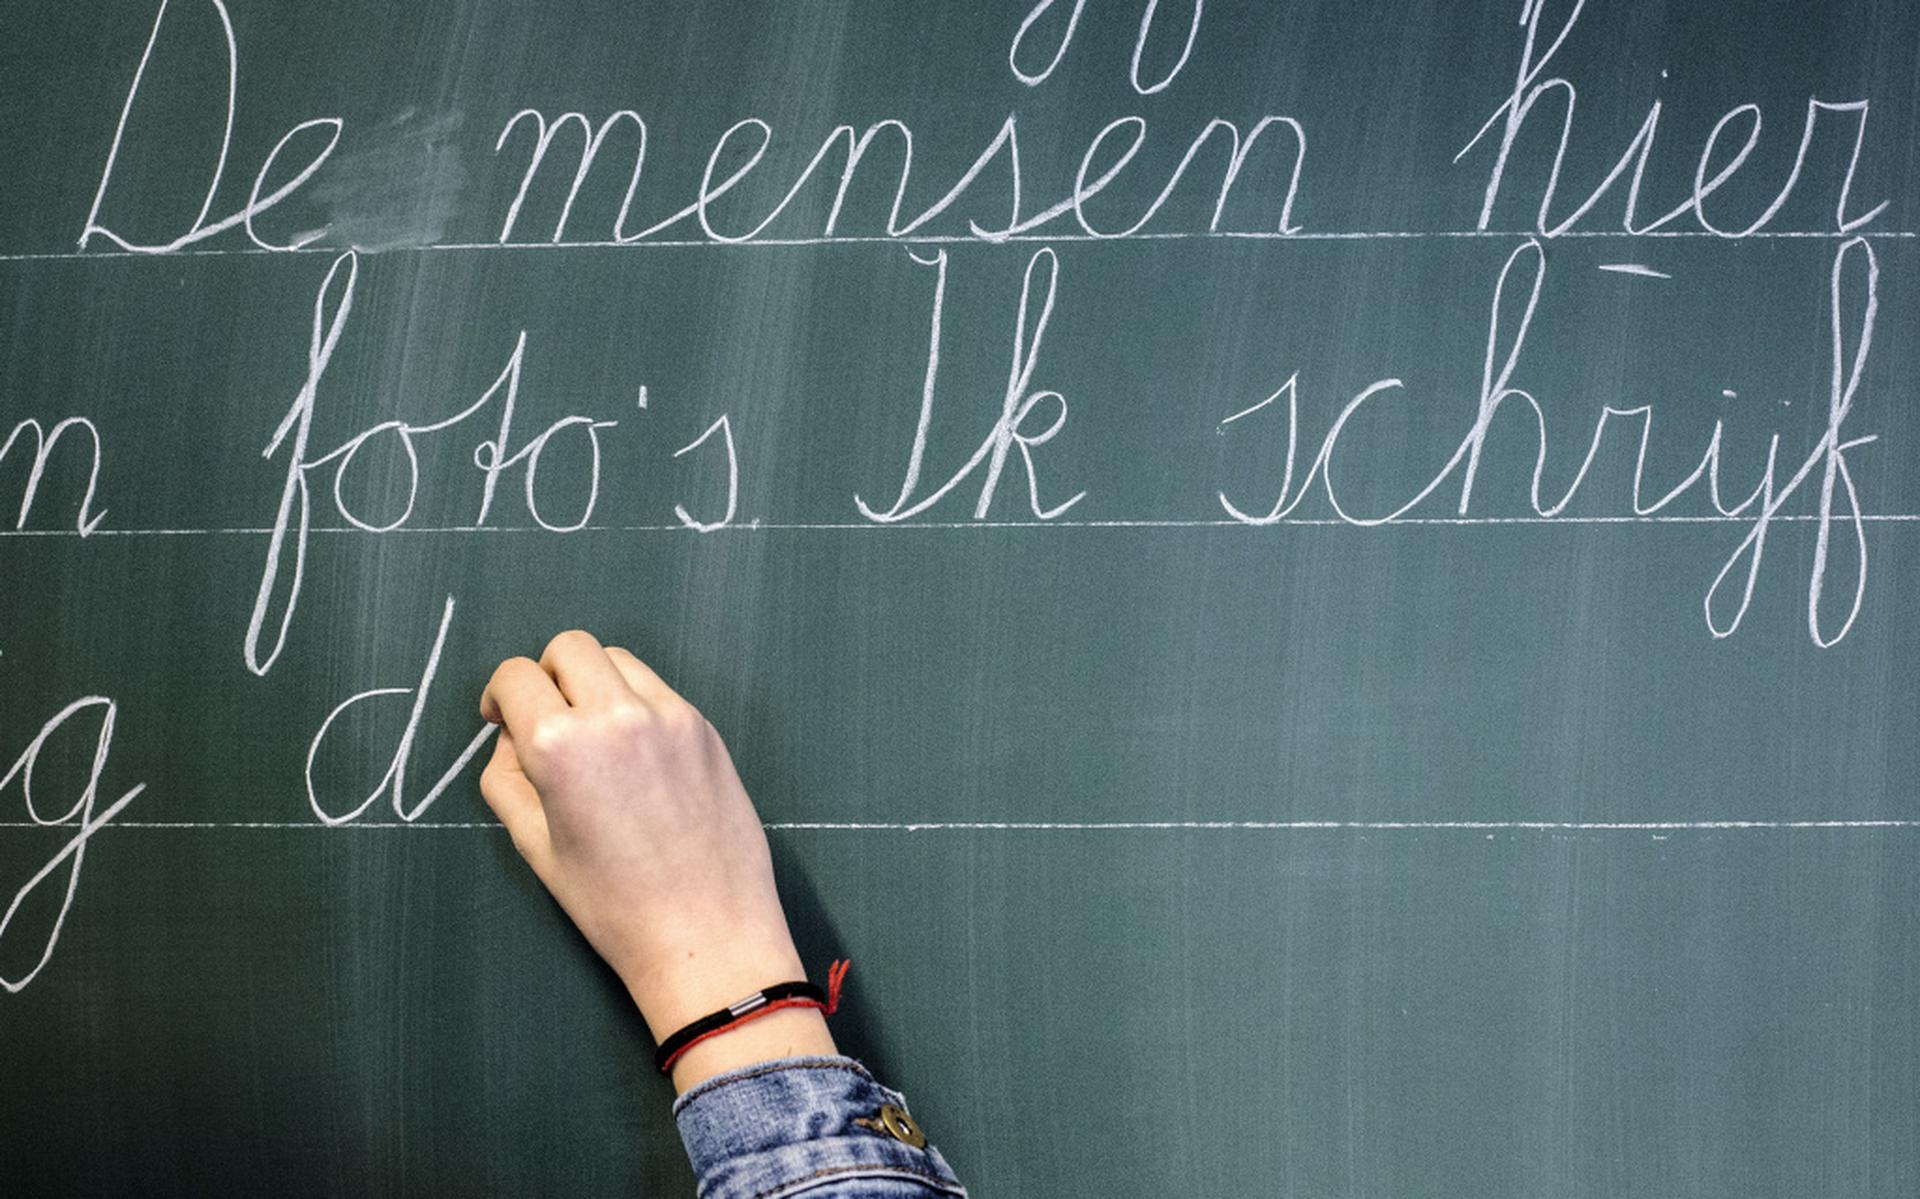 De mensen hier
n foto's Ik schrijf
g d